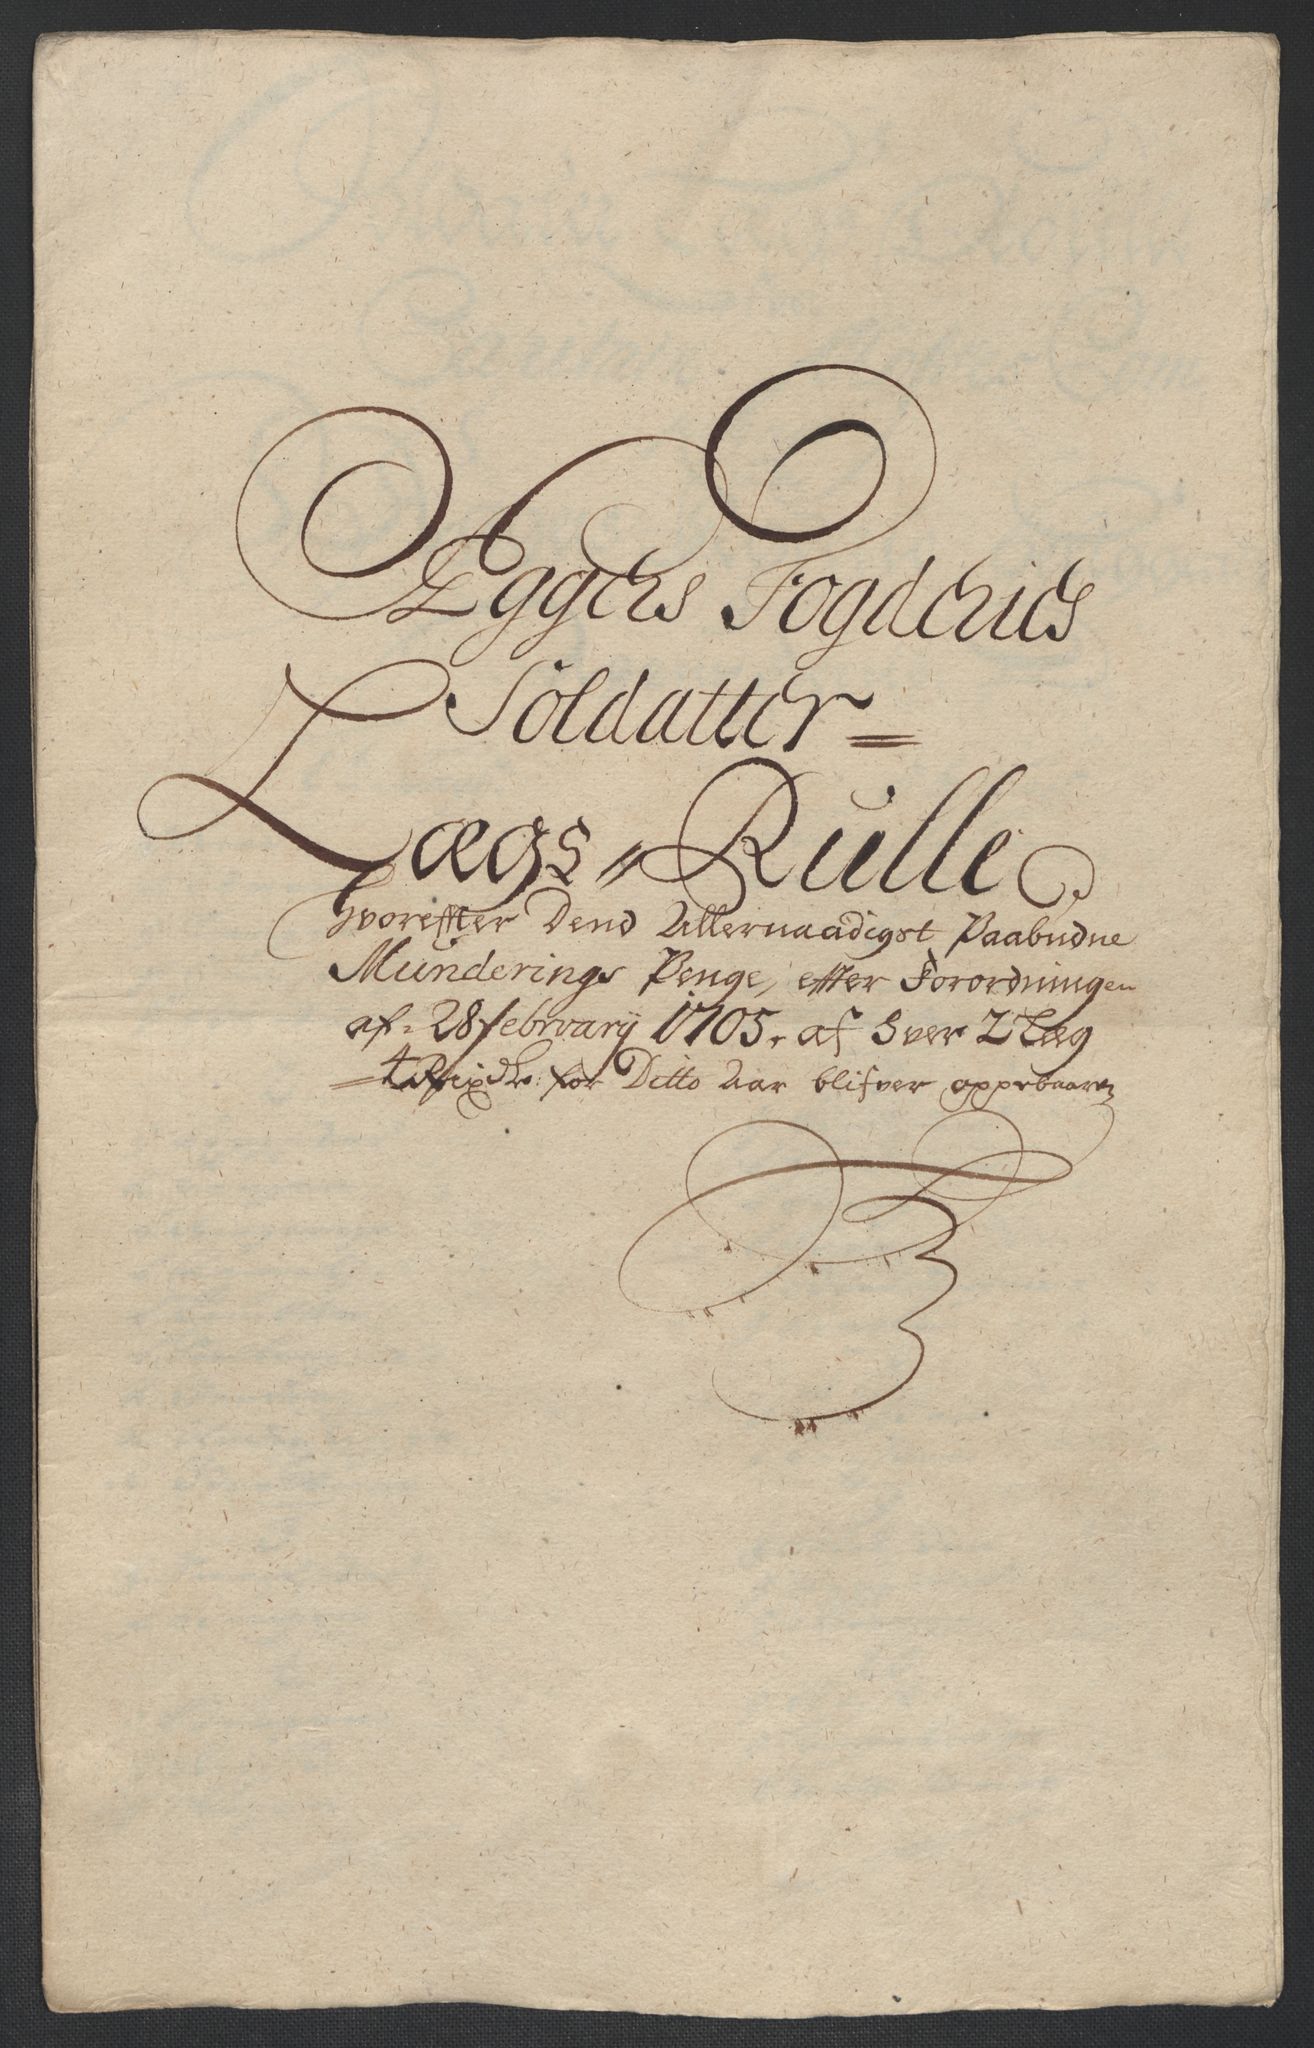 Eggers Fogderies
Soldatter =
Lægs = Rulle
Hvoreffter Dend Allernaadigst Paabudne
Munderings Penge, effter Forordningen
af 28 february 1705, af Hver 2 Læg
4 Rixdlr: for Ditto Aar blifver oppebaaren